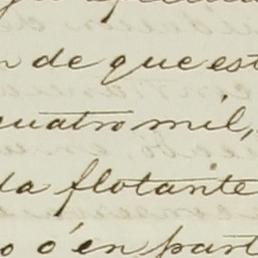 n de que est
cuatro mil,
da flotante
o ó en part